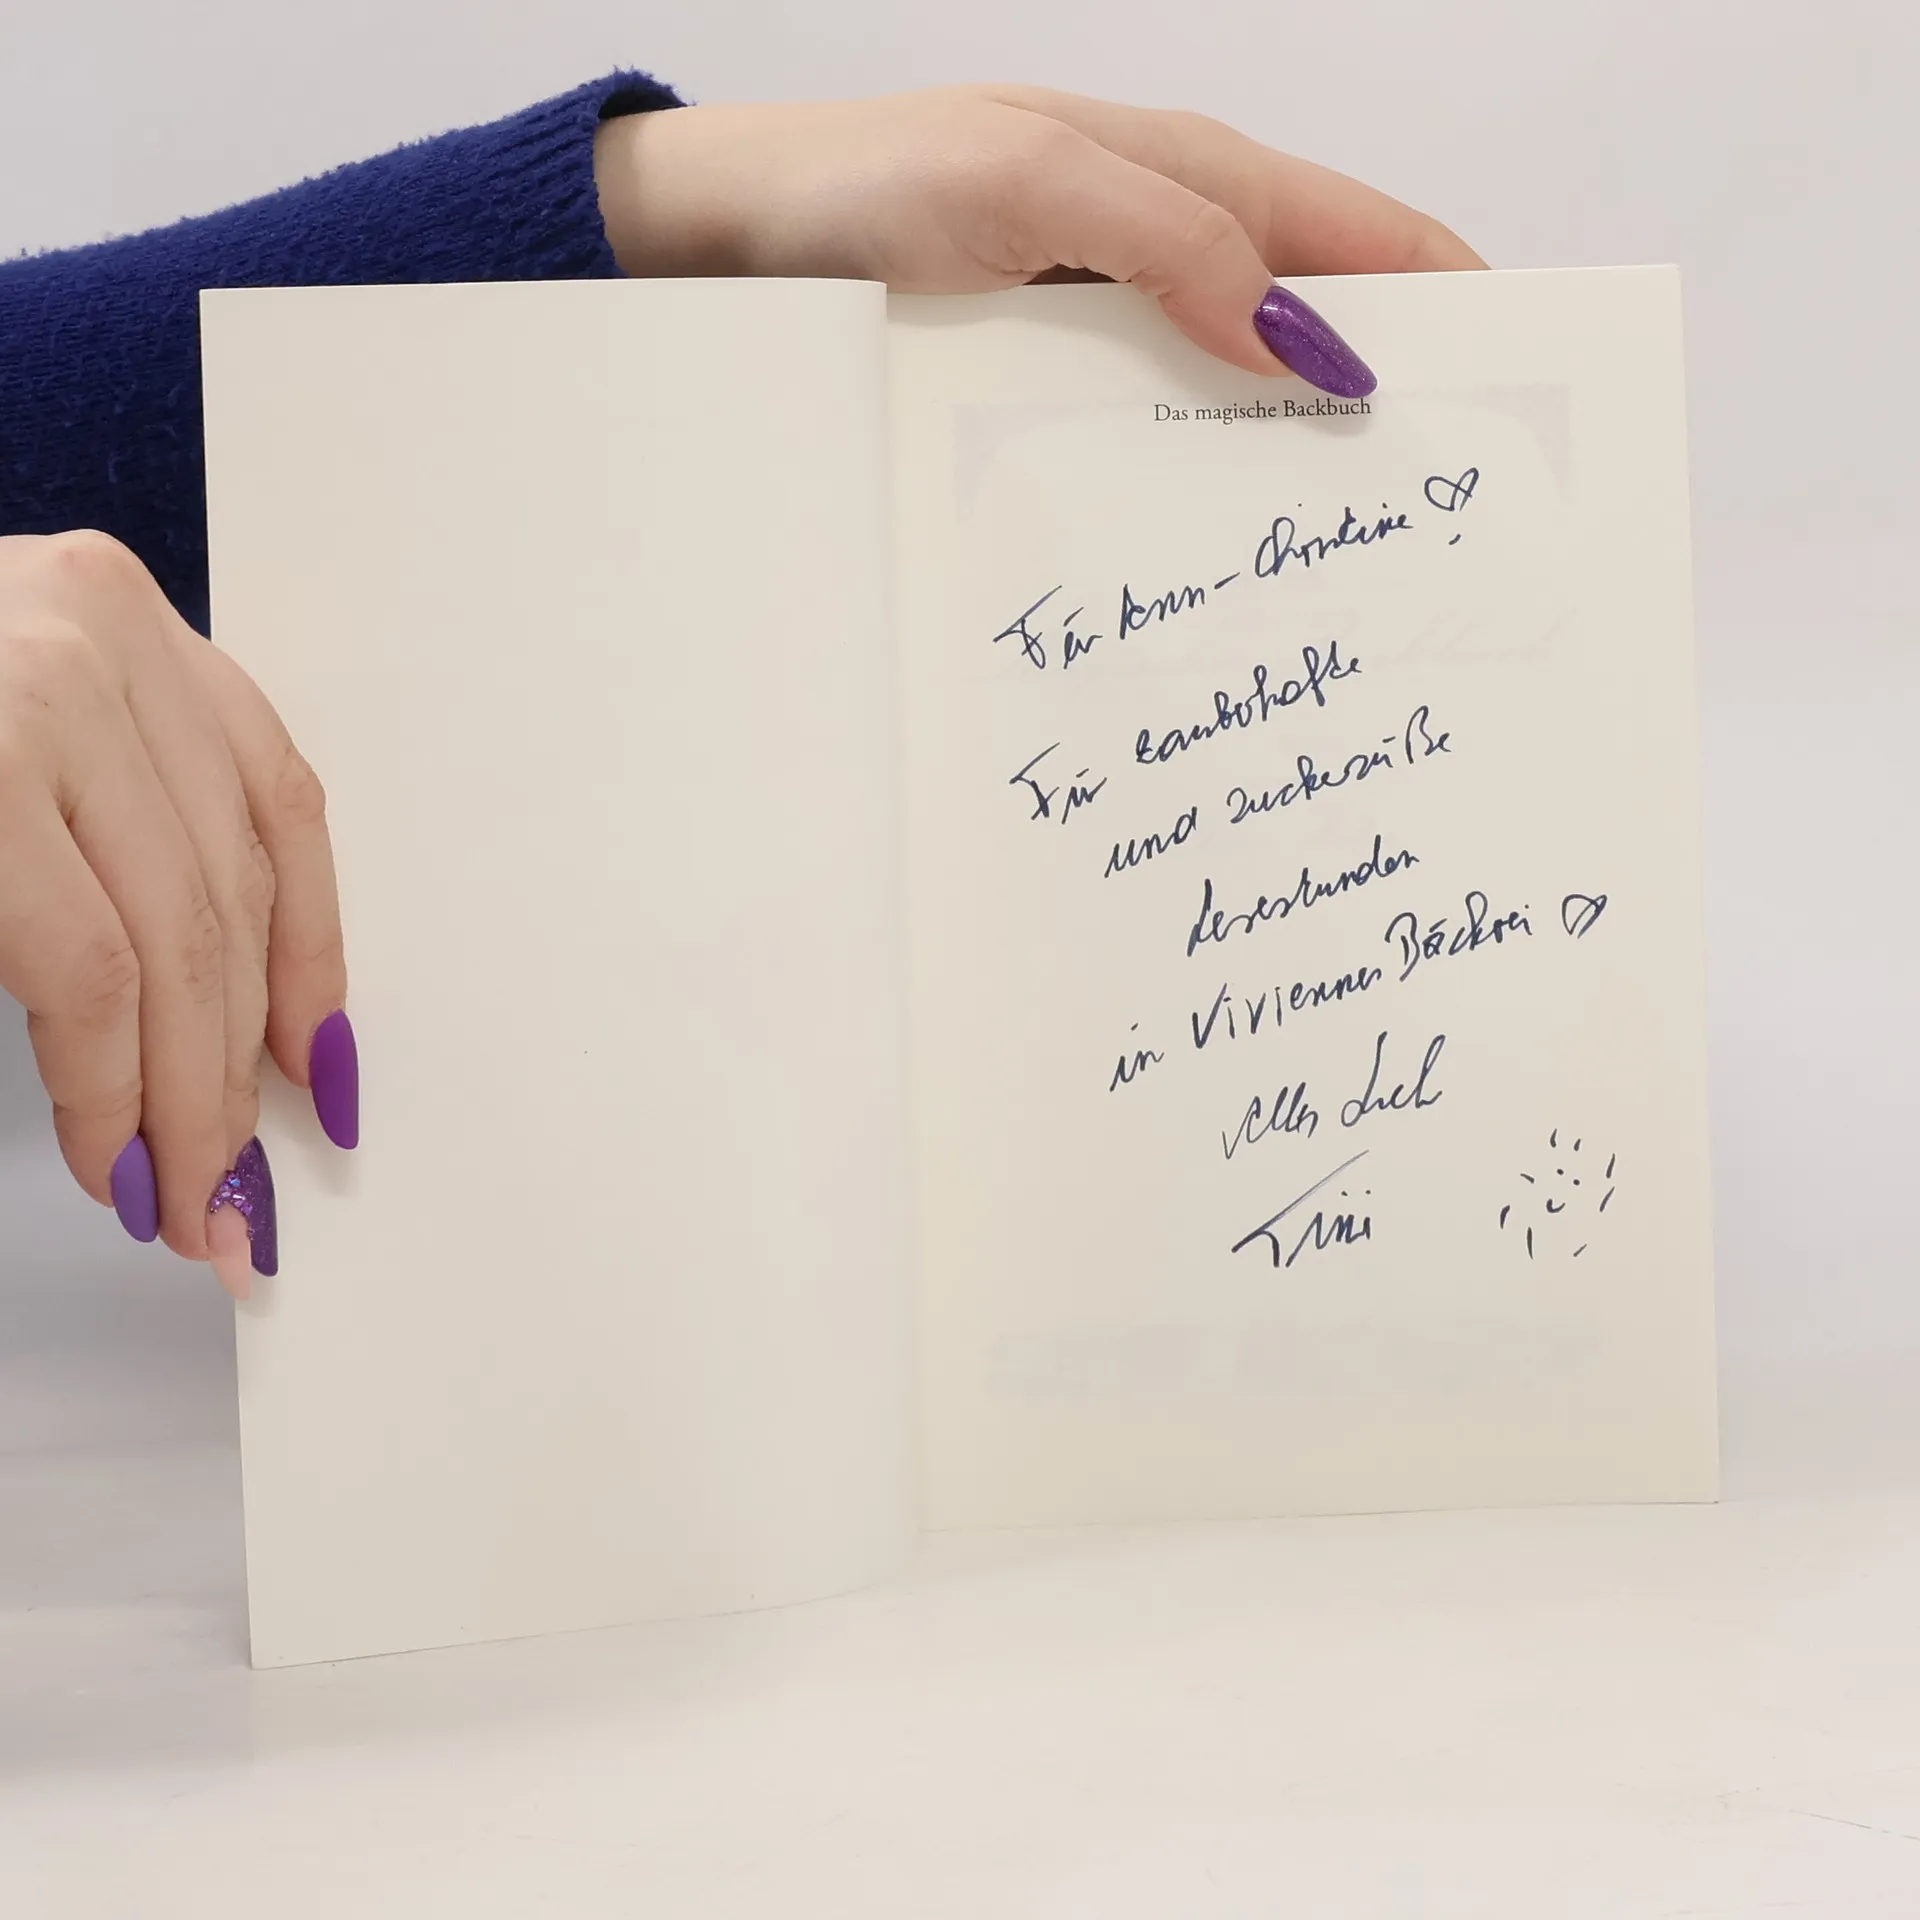 Das magische Backbuch
Für Ann-Christine
Für zauberhafte
und zuckersüße
Lesestunden
in Viviennes Bäckerei
Alles Lieb
Tini